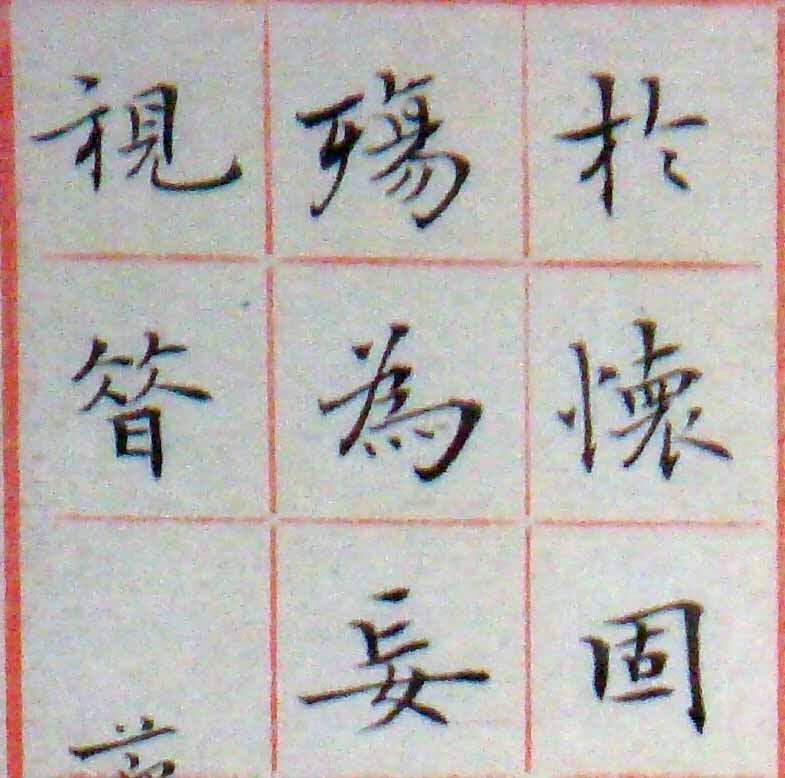 於懷固
殤為妄
視昔